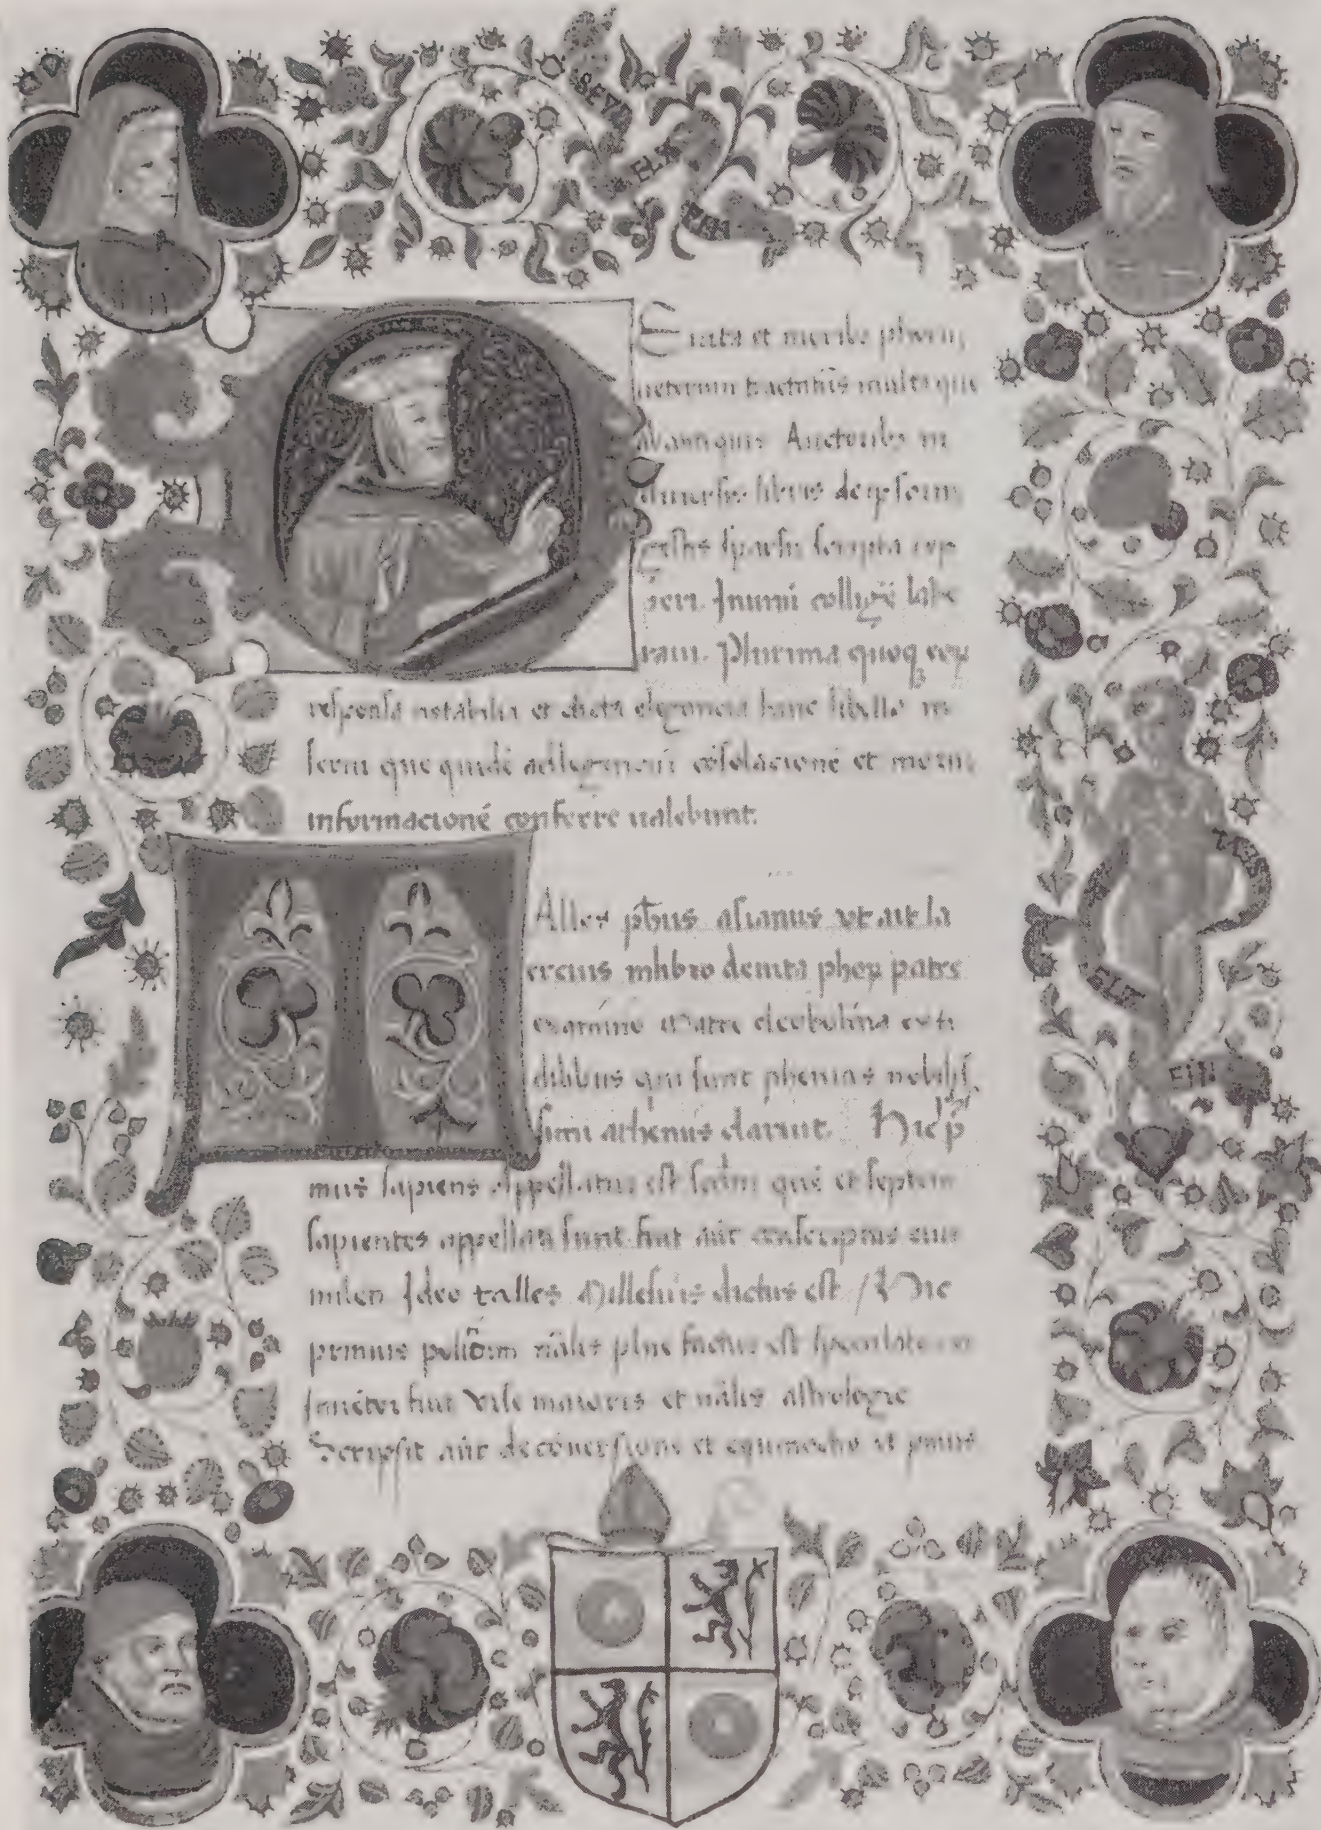 SEYD
ELT
E vita et moribz phorum
ueterum tractaturus multa que
ab antiquis Auctoribz in
diuersis libris de ipsorum
gestis sparsim scripta rep
peri. In unum collige labo
raui. Plurima quoq eorum
responsa notabilia et dicta elegancia huic libello in
serui que quide ad legencium cosolacione et morum
informacione conferre ualebunt.
Alles phus asianus vt ait la
ercius in libro de uita phorum patre
examino Matre cleobolina ex ti
dibbus qui sunt phenias nobilis
simi athenis claruit. Hic p
mus sapiens Appellatus est scdm que et septem
sapientes appellati sunt. fuit aut conscriptus ciuis
milen Ideo talles Millesius dictus est / Hic
primus nalis phus factus est speculator
fuit vrse maioris et nalis astrologie
Scripsit aut de couersione et equinoctio et primus
TATIS
ELT
EIN